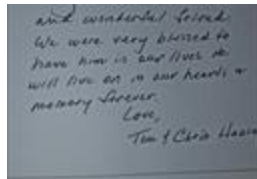 and wonderful friend.
We were very blessed to
have him in our lives. He
will live on in our hearts &
memory forever.
Love,
Tom & Chris